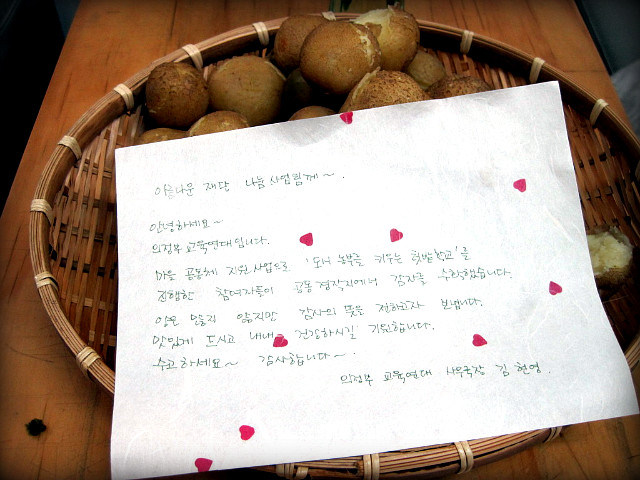 아름다운 재단 나눔사업팀께~.
안녕하세요~
의정부 교육연대입니다.
마을 공동체 지원사업으로 '도시농부를 키우는 텃밭학교'를
진행한 참여자들이 공동경작지에서 감자를 수확했습니다.
양은 많지 않지만 감사의 뜻을 전하고자 보냅니다.
맛있게 드시고 내내 건강하시길 기원합니다.
수고하세요~ 감사합니다~.
의정부 교육연대 사무국장 김현영.